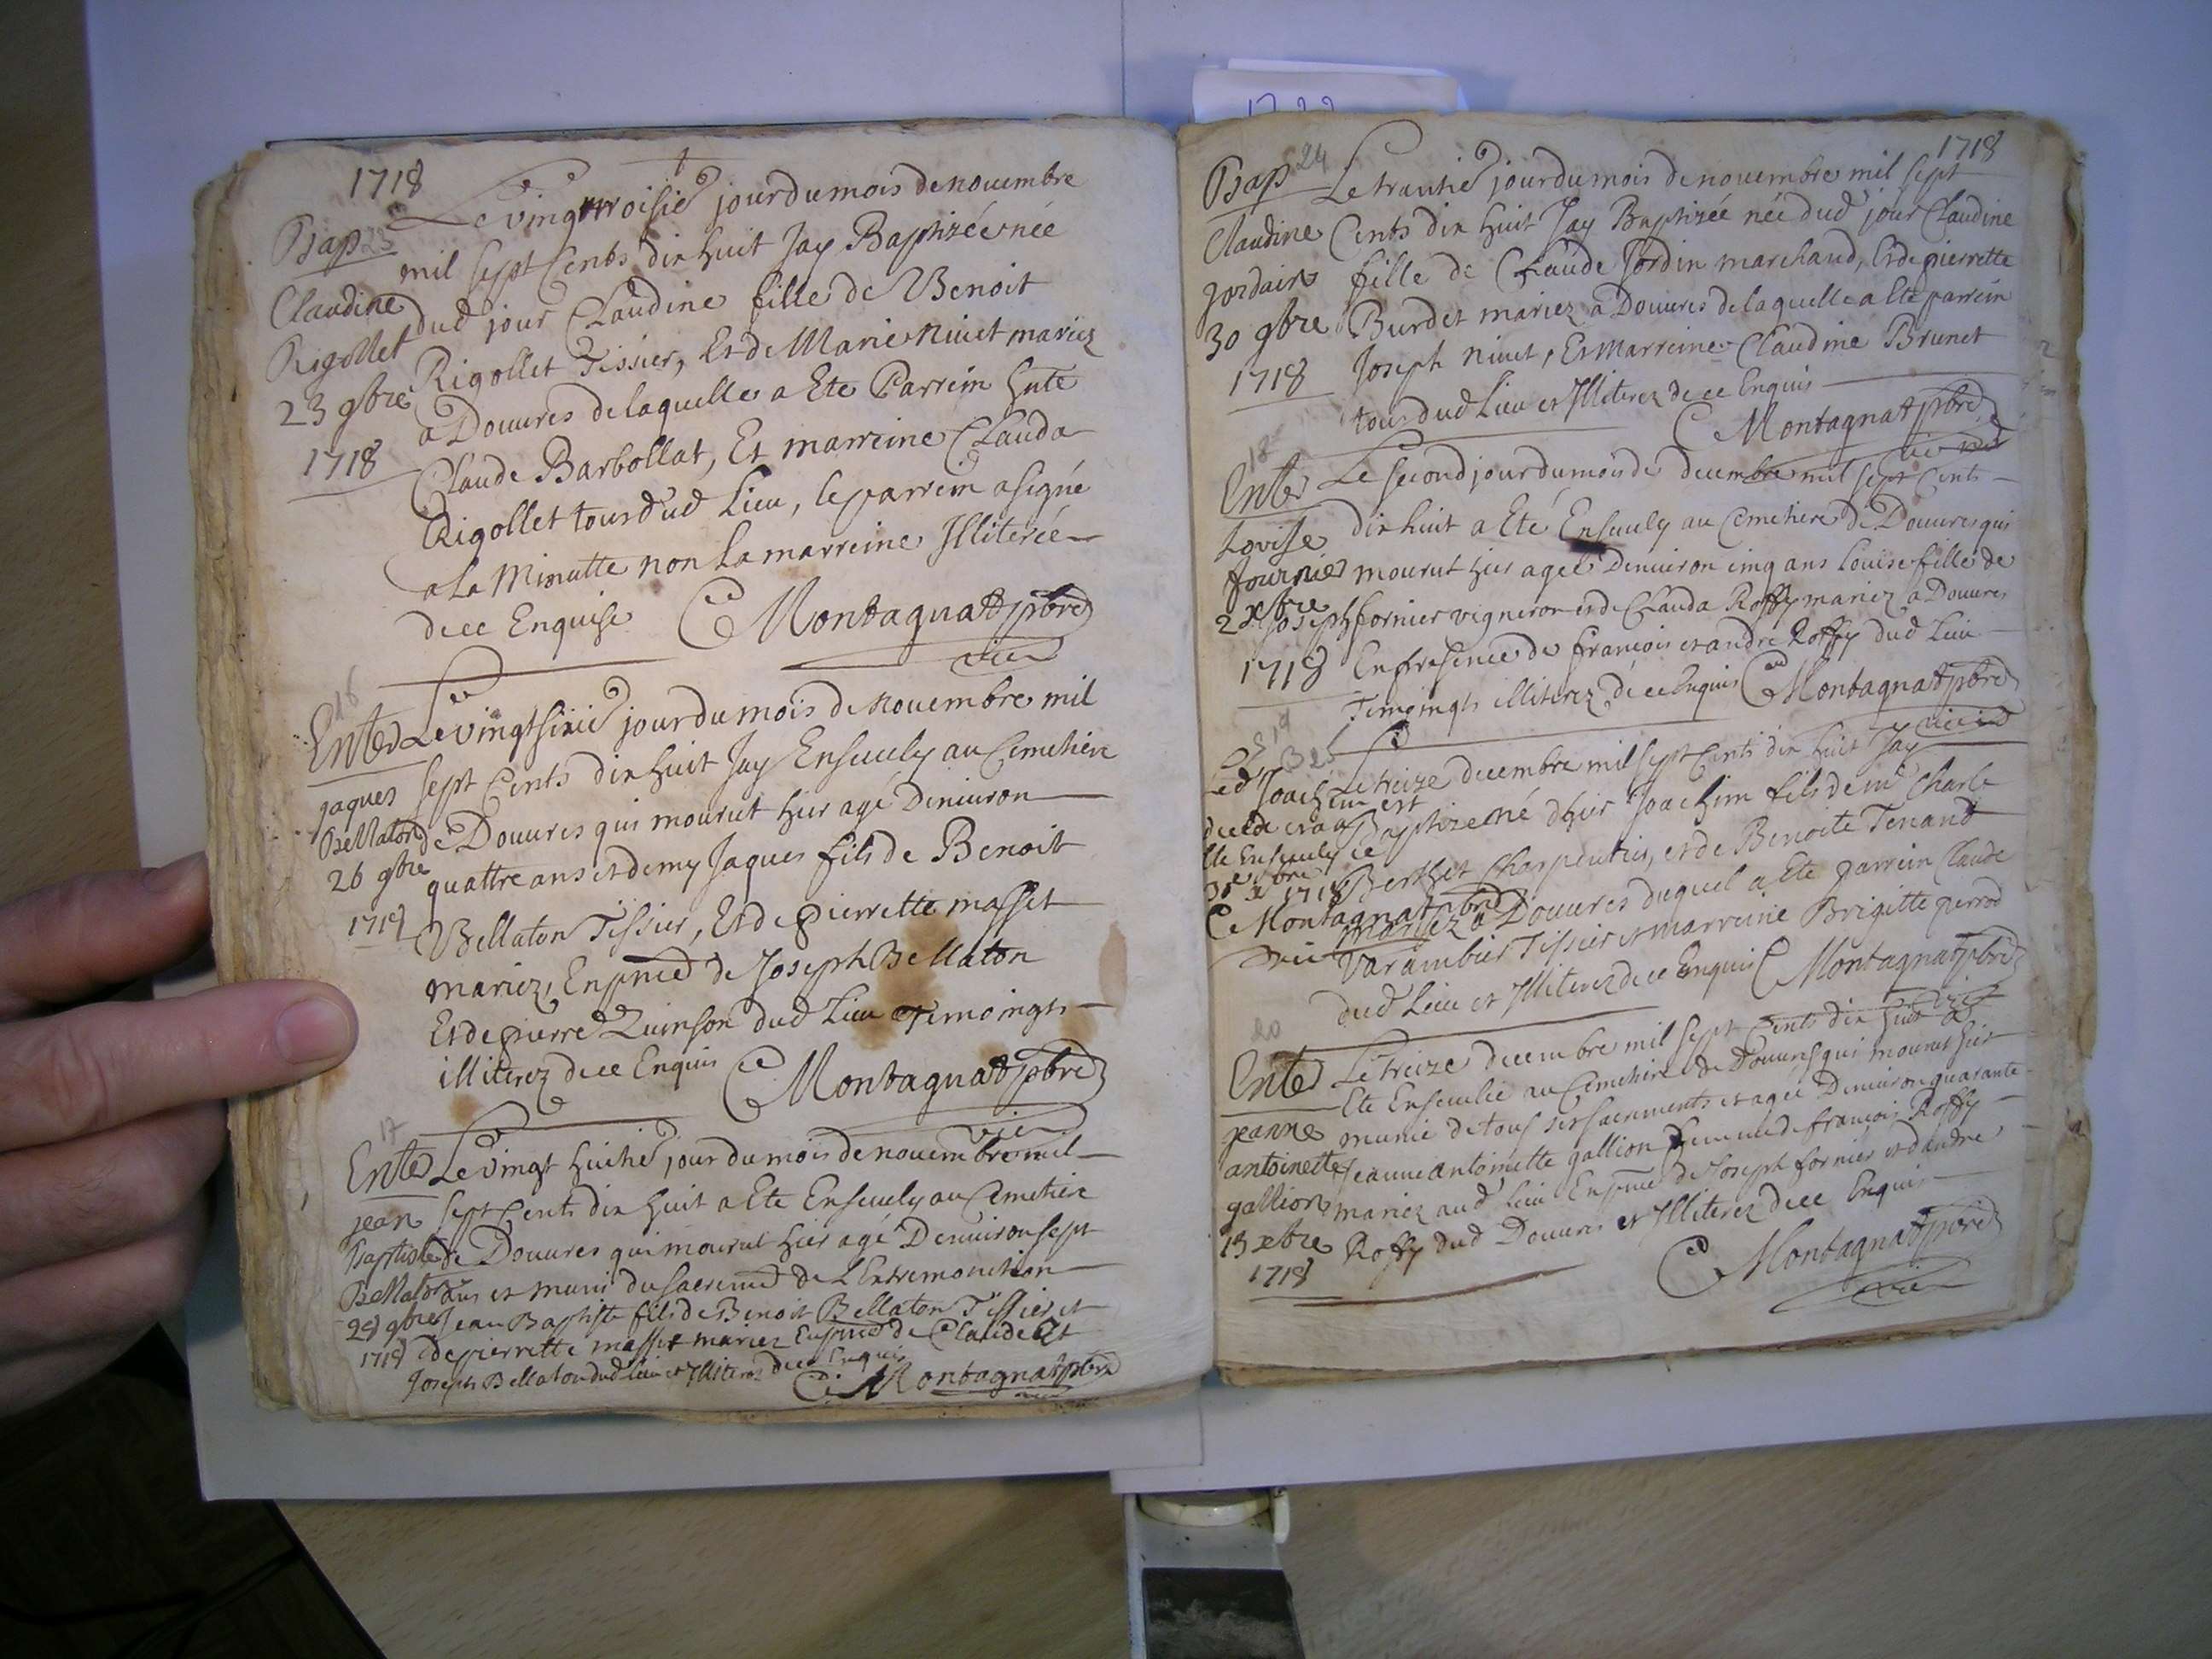 1718
Bap 23
Claudine
Rigollet
23 9bre
1718
Le vingttroisie jour du mois de nouembre
mil sept Cents dix huit Jay Baptizée née
dud jour Claudine fille de Benoit
Rigollet Tissier, Et de Marie Niuet mariez
a Douures de laquelle a Ete Parrein
Claude Barbollat, Et marreine Clauda
Rigollet tous dud Lieu, le parrein a signé
a La Minutte non La marreine Illiterée
de ce Enquise C Montagnat pbre
vic
16
Enter
Jaques
Bellaton
26 9bre
1718
Le vingtsixie jour du mois de Nouembre mil
sept Cents dix huit Jay Enseuely au Cemetiere
de Douures qui mourut hier agé Denuiron
quattre ans et demy Jaques fils de Benoit
Bellaton Tissier, Et de pierrette masset
mariez, En pnce de Joseph Bellaton
Et de pierre Quinson dud Lieu Temoingts
illiterez de ce Enquis C Montagnat pbre
vic
17
Enter
jean
Baptiste
Bellaton
28 9bre
1718
Le vingt huitie jour du mois de nouembre mil
sept Cents dix huit a Ete Enseuely au Cemetiere
de Douures qui mourut hier agé Denuiron sept
ans et muni du sacremt de L'Extremonction
Jean Baptiste fils de Benoit Bellaton Tissier et
de pierrette masset mariez En pnce de Claude Et
Joseph Bellaton dud lieu et Illiterez de ce Enquis
C Montagnat pbre
vic
1718
Bap 24
Claudine
Jordain
30 9bre
1718
Le trantie jour du mois de nouembre mil sept
Cents dix huit Jay Baptizée née dud jour Claudine
fille de Claude Jordin marchand, Et de pierrette
Burdet mariez a Douures de laquelle a Ete parrein
Joseph Niuet, Et marreine Claudine Brunet
tous dud Lieu et Illiterez de ce Enquis
C Montagnat pbre
vic
18
Enter
Lovise
fournier
2 xbre
1718
Le second jour du mois de decembre mil sept Cents
dix huit a Eté Enseuely au Cemetiere de Douures qui
mourut hier agée Denuiron cinq ans Louise fille de
Joseph fornier vigneron et de Clauda Roffy mariez a Douures
En presence de francois et andre Roffy dud Lieu
Temoingts illiterez de ce Enquis C Montagnat pbre
vic
19
B 25
Led Joachim est
decede et a
Ete Enseuely ce
30e xbre 1718
C Montagnat pbre
vic
Le treize decembre mil sept Cents dix huit Jay
Baptize né dhier Joachim fils de mr Charle
Berthet Charpentier, et de Benoite Tenand
mariez a Douures duquel a Ete parrein Claude
Varambier Tissier et marreine Brigitte perrod
dud Lieu et Illiterez de ce Enquis C Montagnat pbre
vic
20
Enter
jeanne
antoinette
gallion
13 xbre
1718
Le treize decembre mil sept Cents dix huit a
Ete Enseuelie au Cemetiere de Douures qui mourut hier
munie de tous ses sacrements et agée Denuiron quarante
Jeanne Antoinette gallion femme de francois Roffy
mariez aud Lieu En pnce de Joseph fornier et dandre
Roffy dud Douures et Illiterez de ce Enquis
C Montagnat pbre
vic